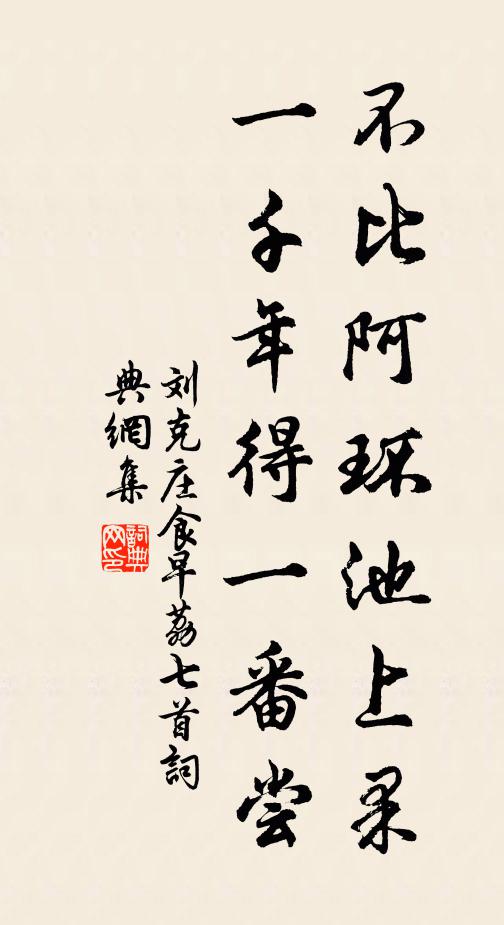 不比阿环池上果
一千年得一番尝
刘克庄食早荔七首詞
典網集
詞典
网印